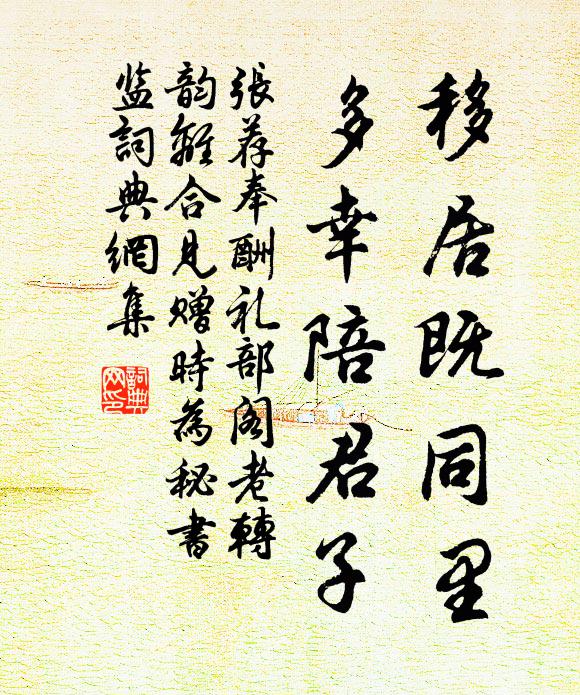 移居既同里
多幸陪君子
張荐奉酬礼部閣老轉
韵離合見贈時為秘書
监詞典網集
詞典
网印